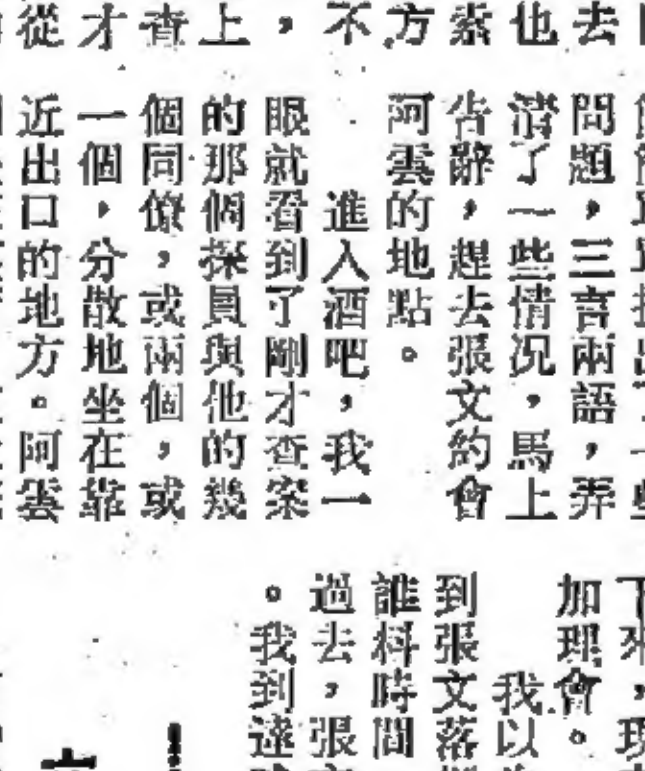 去
也
索
方
不
，
上
查
才
從
問題，三言兩語，弄
清了一些情況，馬上
告辭，趕去張文約會
阿雲的地點。
進入酒吧，我一
眼就看到了剛才查案
的那個探員與他的幾
個同僚，或兩個，或
一個，分散地坐在靠
近出口的地方。阿雲
下來，現
加理會。
我以
到張文落
誰料時間
過去，張
。我到達